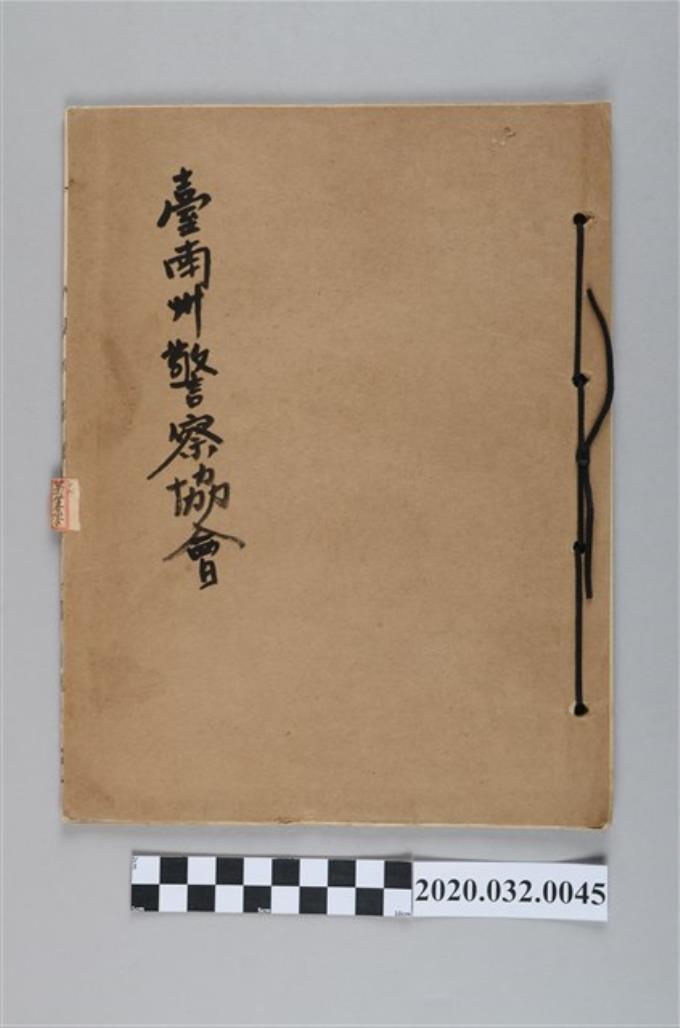 臺南州警察協會
2020.032.0045